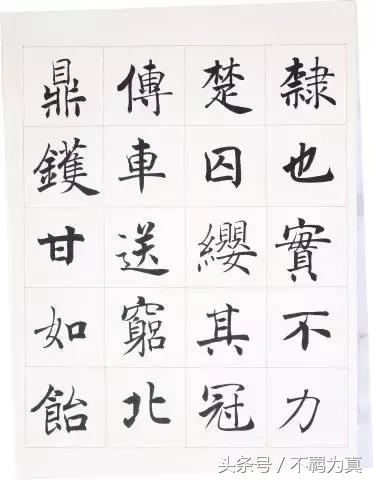 隸也實不力
楚囚纓其冠
傳車送窮北
鼎鑊甘如飴
头条号／不羁为真